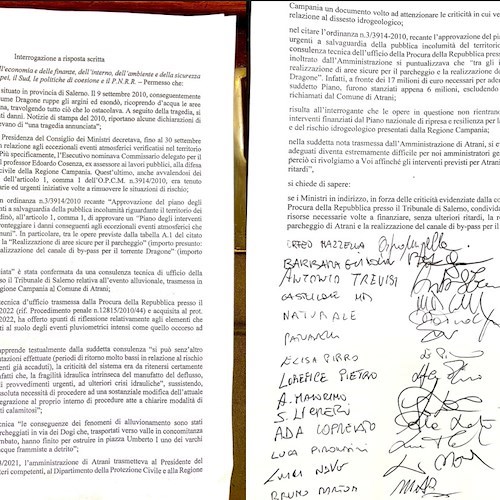 Interrogazione a risposta scritta
ell'economia e delle finanze, dell'interno, dell'ambiente e della sicurezza
pei, il Sud, le politiche di coesione e il P.N.R.R. – Premesso che:
situato in provincia di Salerno. Il 9 settembre 2010, conseguentemente
ume Dragone ruppe gli argini ed esondò, ricoprendo d'acqua le aree
na, travolgendo tutto ciò che lo ostacolava. A seguito della tragedia, si
danni. Notizie di stampa del 2010, riportano alcune dichiarazioni di
avano di "una tragedia annunciata";
Presidenza del Consiglio dei Ministri decretava, fino al 30 settembre
n relazione agli eccezionali eventi atmosferici verificatisi nel territorio
Più specificamente, l'Esecutivo nominava Commissario delegato per il
professor Edoardo Cosenza, ex assessore ai lavori pubblici, alla difesa
civile della Regione Campania. Quest'ultimo, anche avvalendosi dei
dell'articolo 1, comma 1 dell'O.P.C.M. n.3914/2010, era tenuto
ari ed urgenti iniziative volte a rimuovere le situazioni di rischio;
n ordinanza n.3/3914-2010 recante "Approvazione del piano degli
a salvaguardia della pubblica incolumità riguardante il territorio dei
dinò, all'articolo 1, comma 1, di approvare un "Piano degli interventi
ronteggiare i danni conseguenti agli eccezionali eventi atmosferici che
muni". In particolare, tra le opere previste dalla tabella A.1 del citato
e la "Realizzazione di aree sicure per il parcheggio" (importo presunto:
alizzazione del canale di by-pass per il torrente Dragone" (importo
iata" è stata confermata da una consulenza tecnica di ufficio della
sso il Tribunale di Salerno relativa all'evento alluvionale, trasmessa in
egione Campania al Comune di Atrani;
tecnica d'ufficio trasmessa dalla Procura della Repubblica presso il
2022 (rif. Procedimento penale n.12815/2010/44) e acquisita al prot.
/2022, ha offerto spunti di riflessione relativamente agli elementi che
ti al suolo degli eventi pluviometrici intensi come quello occorso ad
apprende testualmente dalla suddetta consulenza "si può senz'altro
tazioni effettuate (periodi di ritorno molto bassi in relazione al rischio
enti già accaduti), la criticità del sistema era da ritenersi certamente
nfatti che, la fragilità idraulica intrinseca del manufatto del deflusso,
gli provvedimenti urgenti, ad ulteriori crisi idrauliche", sussistendo,
soluta necessità di procedere ad una sostanziale modifica dell'attuale
tegrazione al proprio interno di procedure atte a chiarire modalità di
ti calamitosi";
cnica "le conseguenze dei fenomeni di alluvionamento sono stati
archeggiati in via dei Dogi che, trasportati verso valle in concomitanza
mbato, hanno finito per ostruire in piazza Umberto I uno dei varchi
acque frammiste a detrito";
3/2021, l'amministrazione di Atrani trasmetteva al Presidente del
steri competenti, al Dipartimento della Protezione Civile e alla Regione
Campania un documento volto ad attenzionare le criticità in cui ve
relazione al dissesto idrogeologico;
nel citare l'ordinanza n.3/3914-2010, recante l'approvazione del pi
urgenti a salvaguardia della pubblica incolumità del territorio
consulenza tecnica dell'ufficio della Procura della Repubblica presso
inoltrato dall'Amministrazione si puntualizzava che "tra gli i
realizzazione di aree sicure per il parcheggio e la realizzazione de
Dragone". Infatti, a fronte dei 17 milioni di euro necessari per ader
suddetto Piano, furono stanziati appena 6 milioni, escludendo
richiamati dal Comune di Atrani;
risulta all'interrogante che le opere in questione non rientran
interventi finanziati dal Piano nazionale di ripresa e resilienza per l
e del rischio idrogeologico presentati dalla Regione Campania;
nella suddetta nota trasmessa dall'Amministrazione di Atrani, si e
adeguati diventa estremamente difficile per noi amministratori gar
perciò ci rivolgiamo a Voi affinché gli interventi previsti per Atrani
ritardi",
si chiede di sapere:
se i Ministri in indirizzo, in forza delle criticità evidenziate dalla co
Procura della Repubblica presso il Tribunale di Salerno, condivide
risorse necessarie volte a finanziare, senza ulteriori ritardi, la re
parcheggio di Atrani e la realizzazione del canale di by-pass per il t
MAZZELLA
BARBARA
ANTONIO TREVISI
NATURALE
PATUANELLI
ELISA PIRRO
LOREFICE PIETRO
A. MAIORINO
ADA LOPREIATO
LUCA PIRONDINI
BRUNO